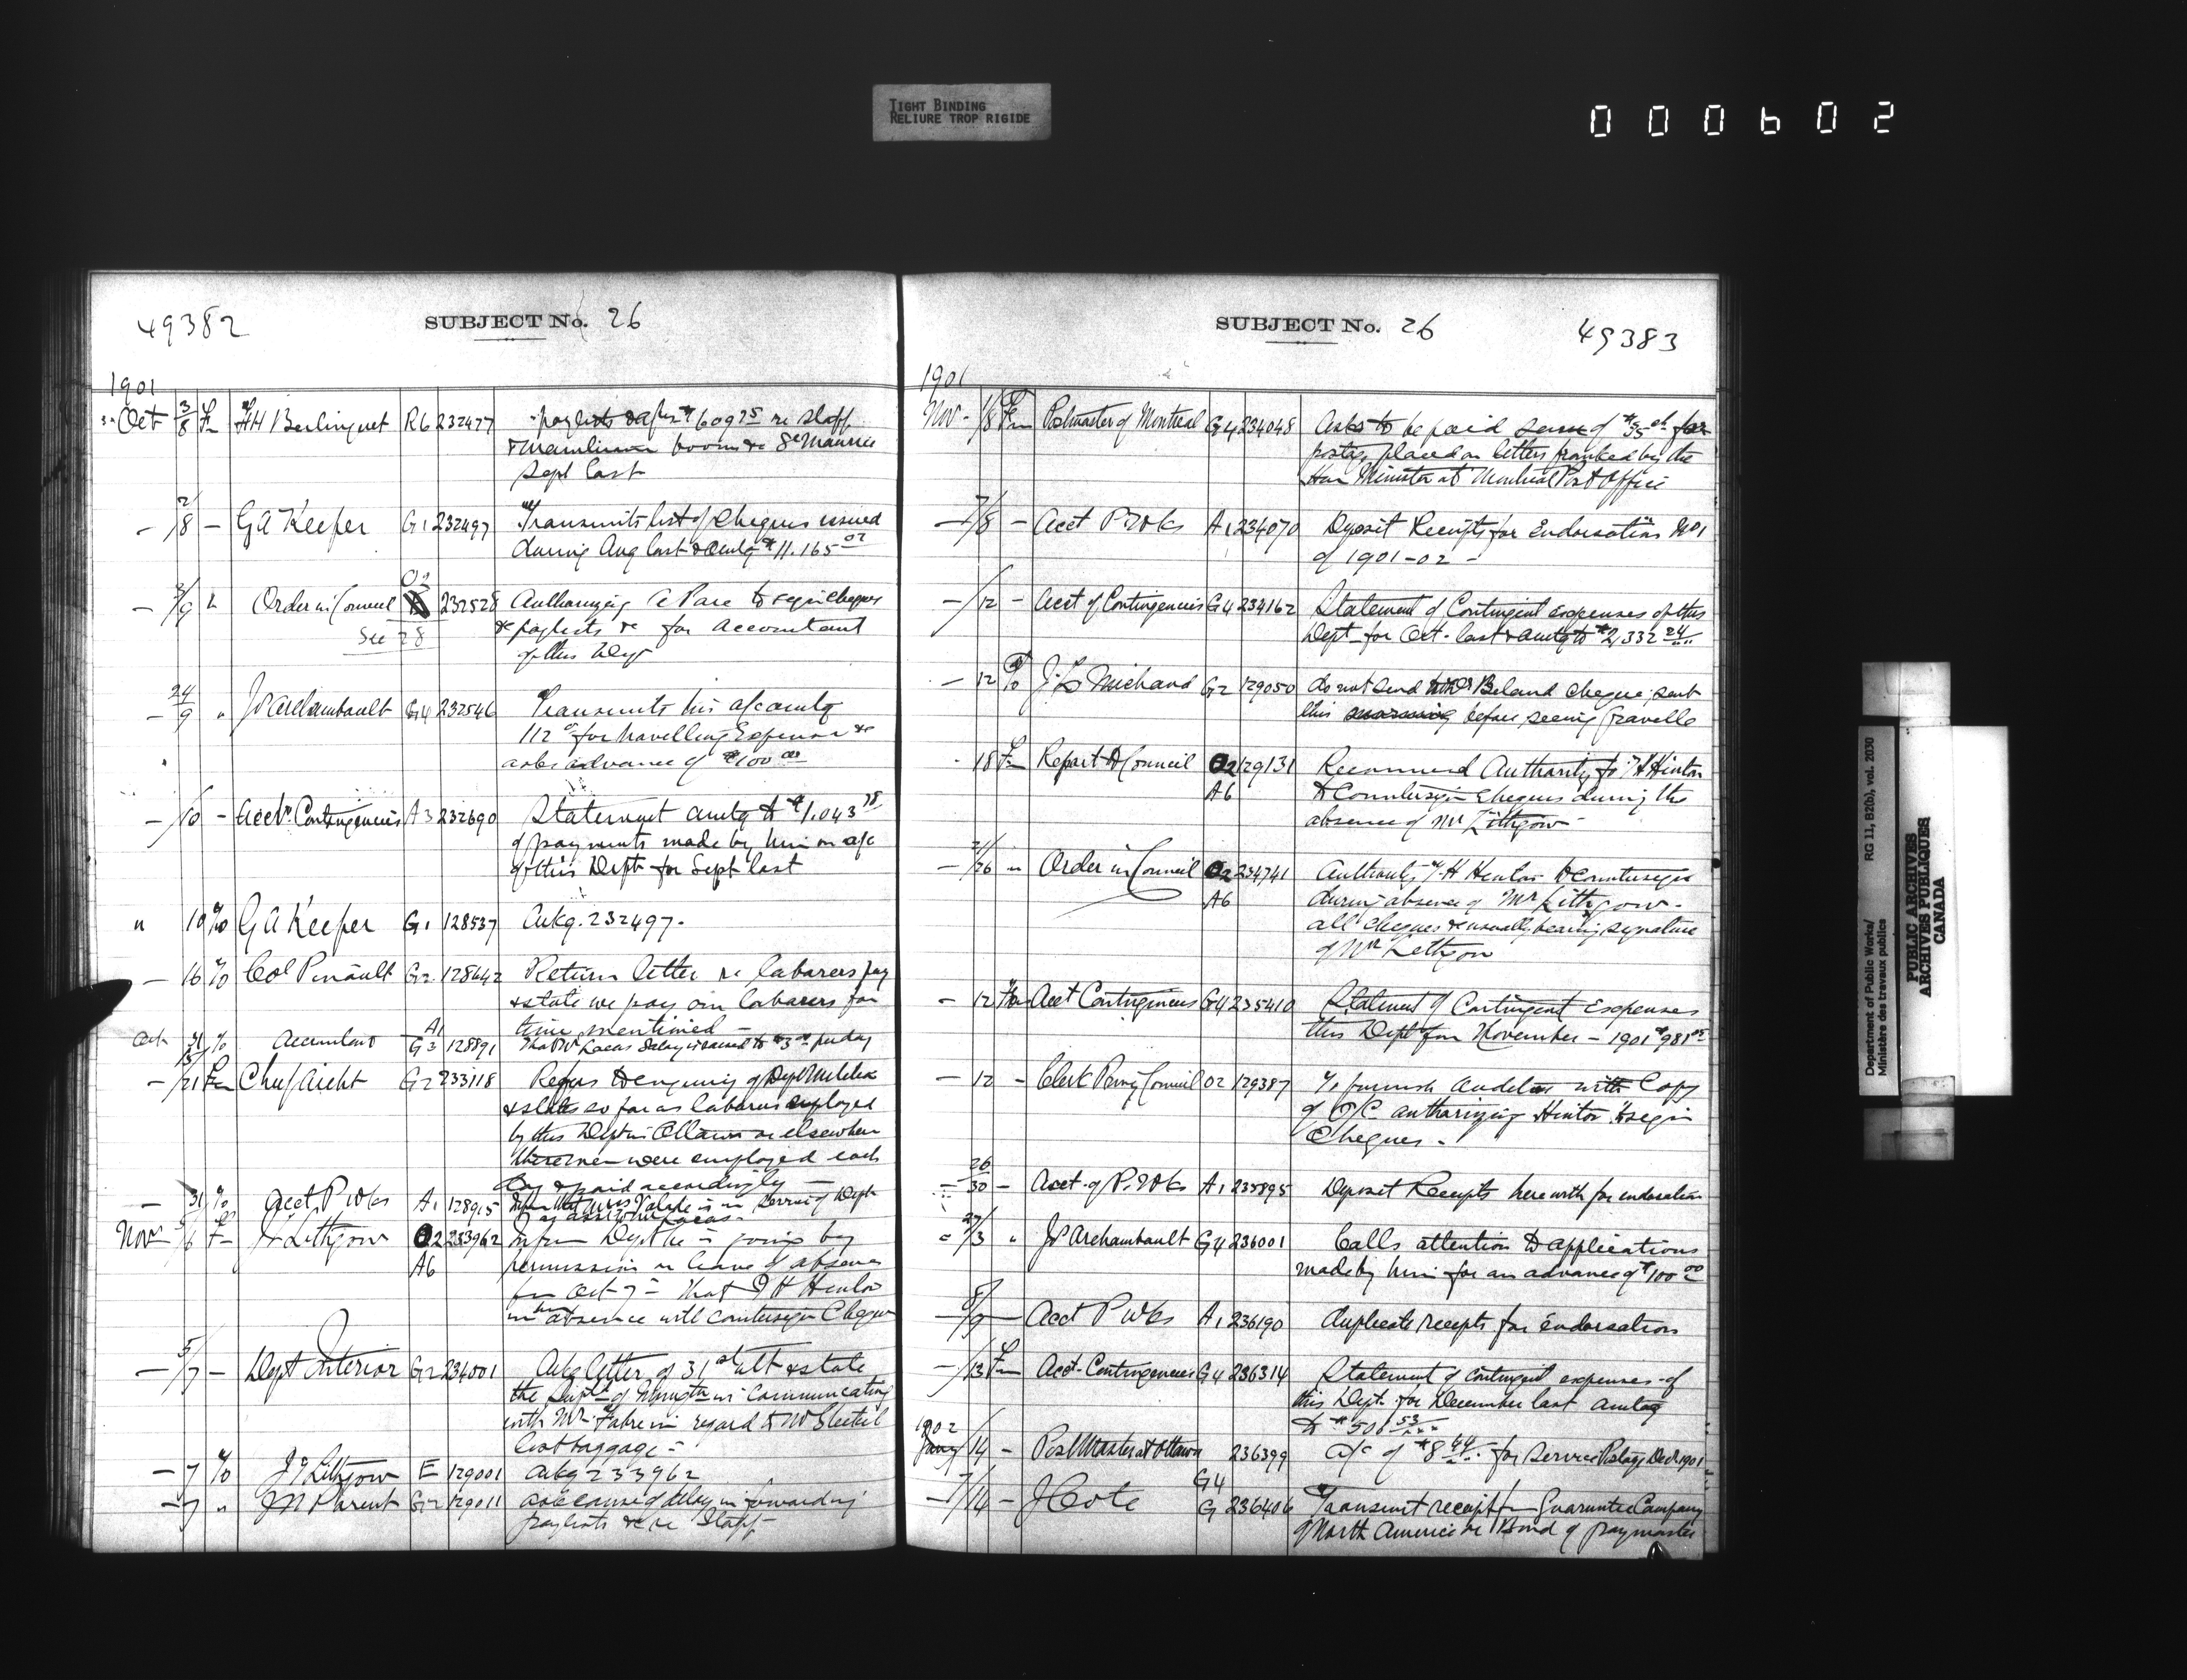 TIGHT BINDING
RELIURE TROP RIGIDE
000602
49382
SUBJECT No. 26
1901
Oct 3/8 Fm H Berlinguet R6 232477 paylists $609 25 re staff
boom St Maurice
Sept last
2/8 — G A Keefer G1 232497 Transmits list of cheques issued
during Aug last & amtg $11.165 02
O2
3/9 Order in Council 232528 Authorizing to sign cheques
See 28 & paylists &c for Accountant
of this Dept
24/9 " J Archambault G4 232546 Transmits his a/c amtg
112 for travelling Expenses &c
asks advance of $100 00
/10 — Acct Contingencies A3 232690 Statement amtg to $1.043 78
of payments made by him on a/c
of this Dept for Sept last
" 10 To G A Keefer G1 128537 Ackg. 232497.
— 16 To Col Pinault G2 128642 Return letter re laborers pay
& state we pay our laborers for
time mentioned —
Oct 31 To Accountant A1 G3 128891 salary to $3 00 per day
— /21 Fm Chief Archt G2 233118 Refers to enquiry of Dept Militia
& states so far as laborers employed
by this Dept in Ottawa or elsewhere
these men were employed each
day & paid accordingly —
— 31 To Acct P Wks A1 128915 in service of Dept
Nov 5/6 Fm J Lithgow O2 233962 Inform Dept he is going by
A6 permission on leave of absence
for Oct 7 — That H Hinton
in his absence will countersign Cheques
— 5/7 — Dept Interior G2 234001 Ackg letter of 31st ult & state
the Dept is communicating
with Mr Fabre in regard to
lost baggage —
— 7 To J Lithgow E 129001 Ackg 233962
— 7 " J N Parent G2 129011 ask cause of delay in forwarding
paylists &c re Staff
SUBJECT No. 26
49383
1901
Nov — /8 Fm Postmaster of Montreal G4 234048 Asks to be paid sum of for
postage placed on letters franked by the
Hon Minister at Montreal Post Office
— 7/8 — Acct P Wks A1 234070 Deposit Receipts for Endorsation No 1
of 1901-02 —
— /12 — Acct of Contingencies G4 234162 Statement of Contingent expenses of this
Dept for Oct. last & amtg to $2,332 24
— 12 To J. L. Michaud G2 129050 do not send Beland cheque sent
this morning before seeing Gravelle
18 Fm Report to Council O2 129131 Recommend Authority for H Hinton
A6 to Countersign cheques during the
absence of Mr Lithgow —
— 21/26 " Order in Council O2 234741 Authority H Hinton to Countersign
A6 during absence of Mr Lithgow —
all cheques &c usually bearing signature
of Mr Lithgow
— 12 Fm Acct Contingencies G4 235410 Statement of Contingent Expenses
this Dept for November — 1901 $981 05
— 12 — Clerk Privy Council O2 129387 To furnish Auditor with Copy
of O/C authorizing Hinton to sign
Cheques —
26/30 — Acct. of P. Wks A1 235895 Deposit Receipts herewith for endorsation
27/3 " J Archambault G4 236001 Calls attention to applications
made by him for an advance of $100 00
— 8/9 — Acct P Wks A1 236190 duplicate receipts for Endorsation
— /13 Fm Acct. Contingencies G4 236314 Statement of contingent expenses of
this Dept. for December last amtg
to $501 53
1902
Jany /14 — Post Master at Ottawa G4 236399 A/c of $8 44 for service Postage Dec 1901
— 7/14 — J Cote G 236406 Transmit receipt from Guarantee Company
of North America re Bond of paymaster
Department of Public Works/
Ministère des travaux publics
RG 11, B2(b), vol. 2030
PUBLIC ARCHIVES
ARCHIVES PUBLIQUES
CANADA